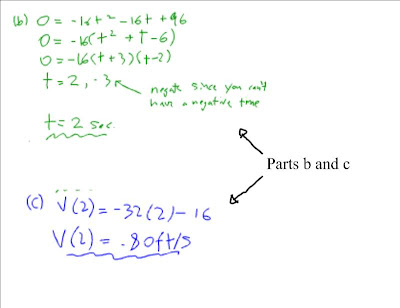 (b) 0 = -16t² -16t + 96
0 = -16(t² + t - 6)
0 = -16(t + 3)(t - 2)
t = 2, -3
negate since you can't
have a negative time
t = 2 sec.
Parts b and c
(c) V(2) = -32(2) - 16
V(2) = -80ft/s